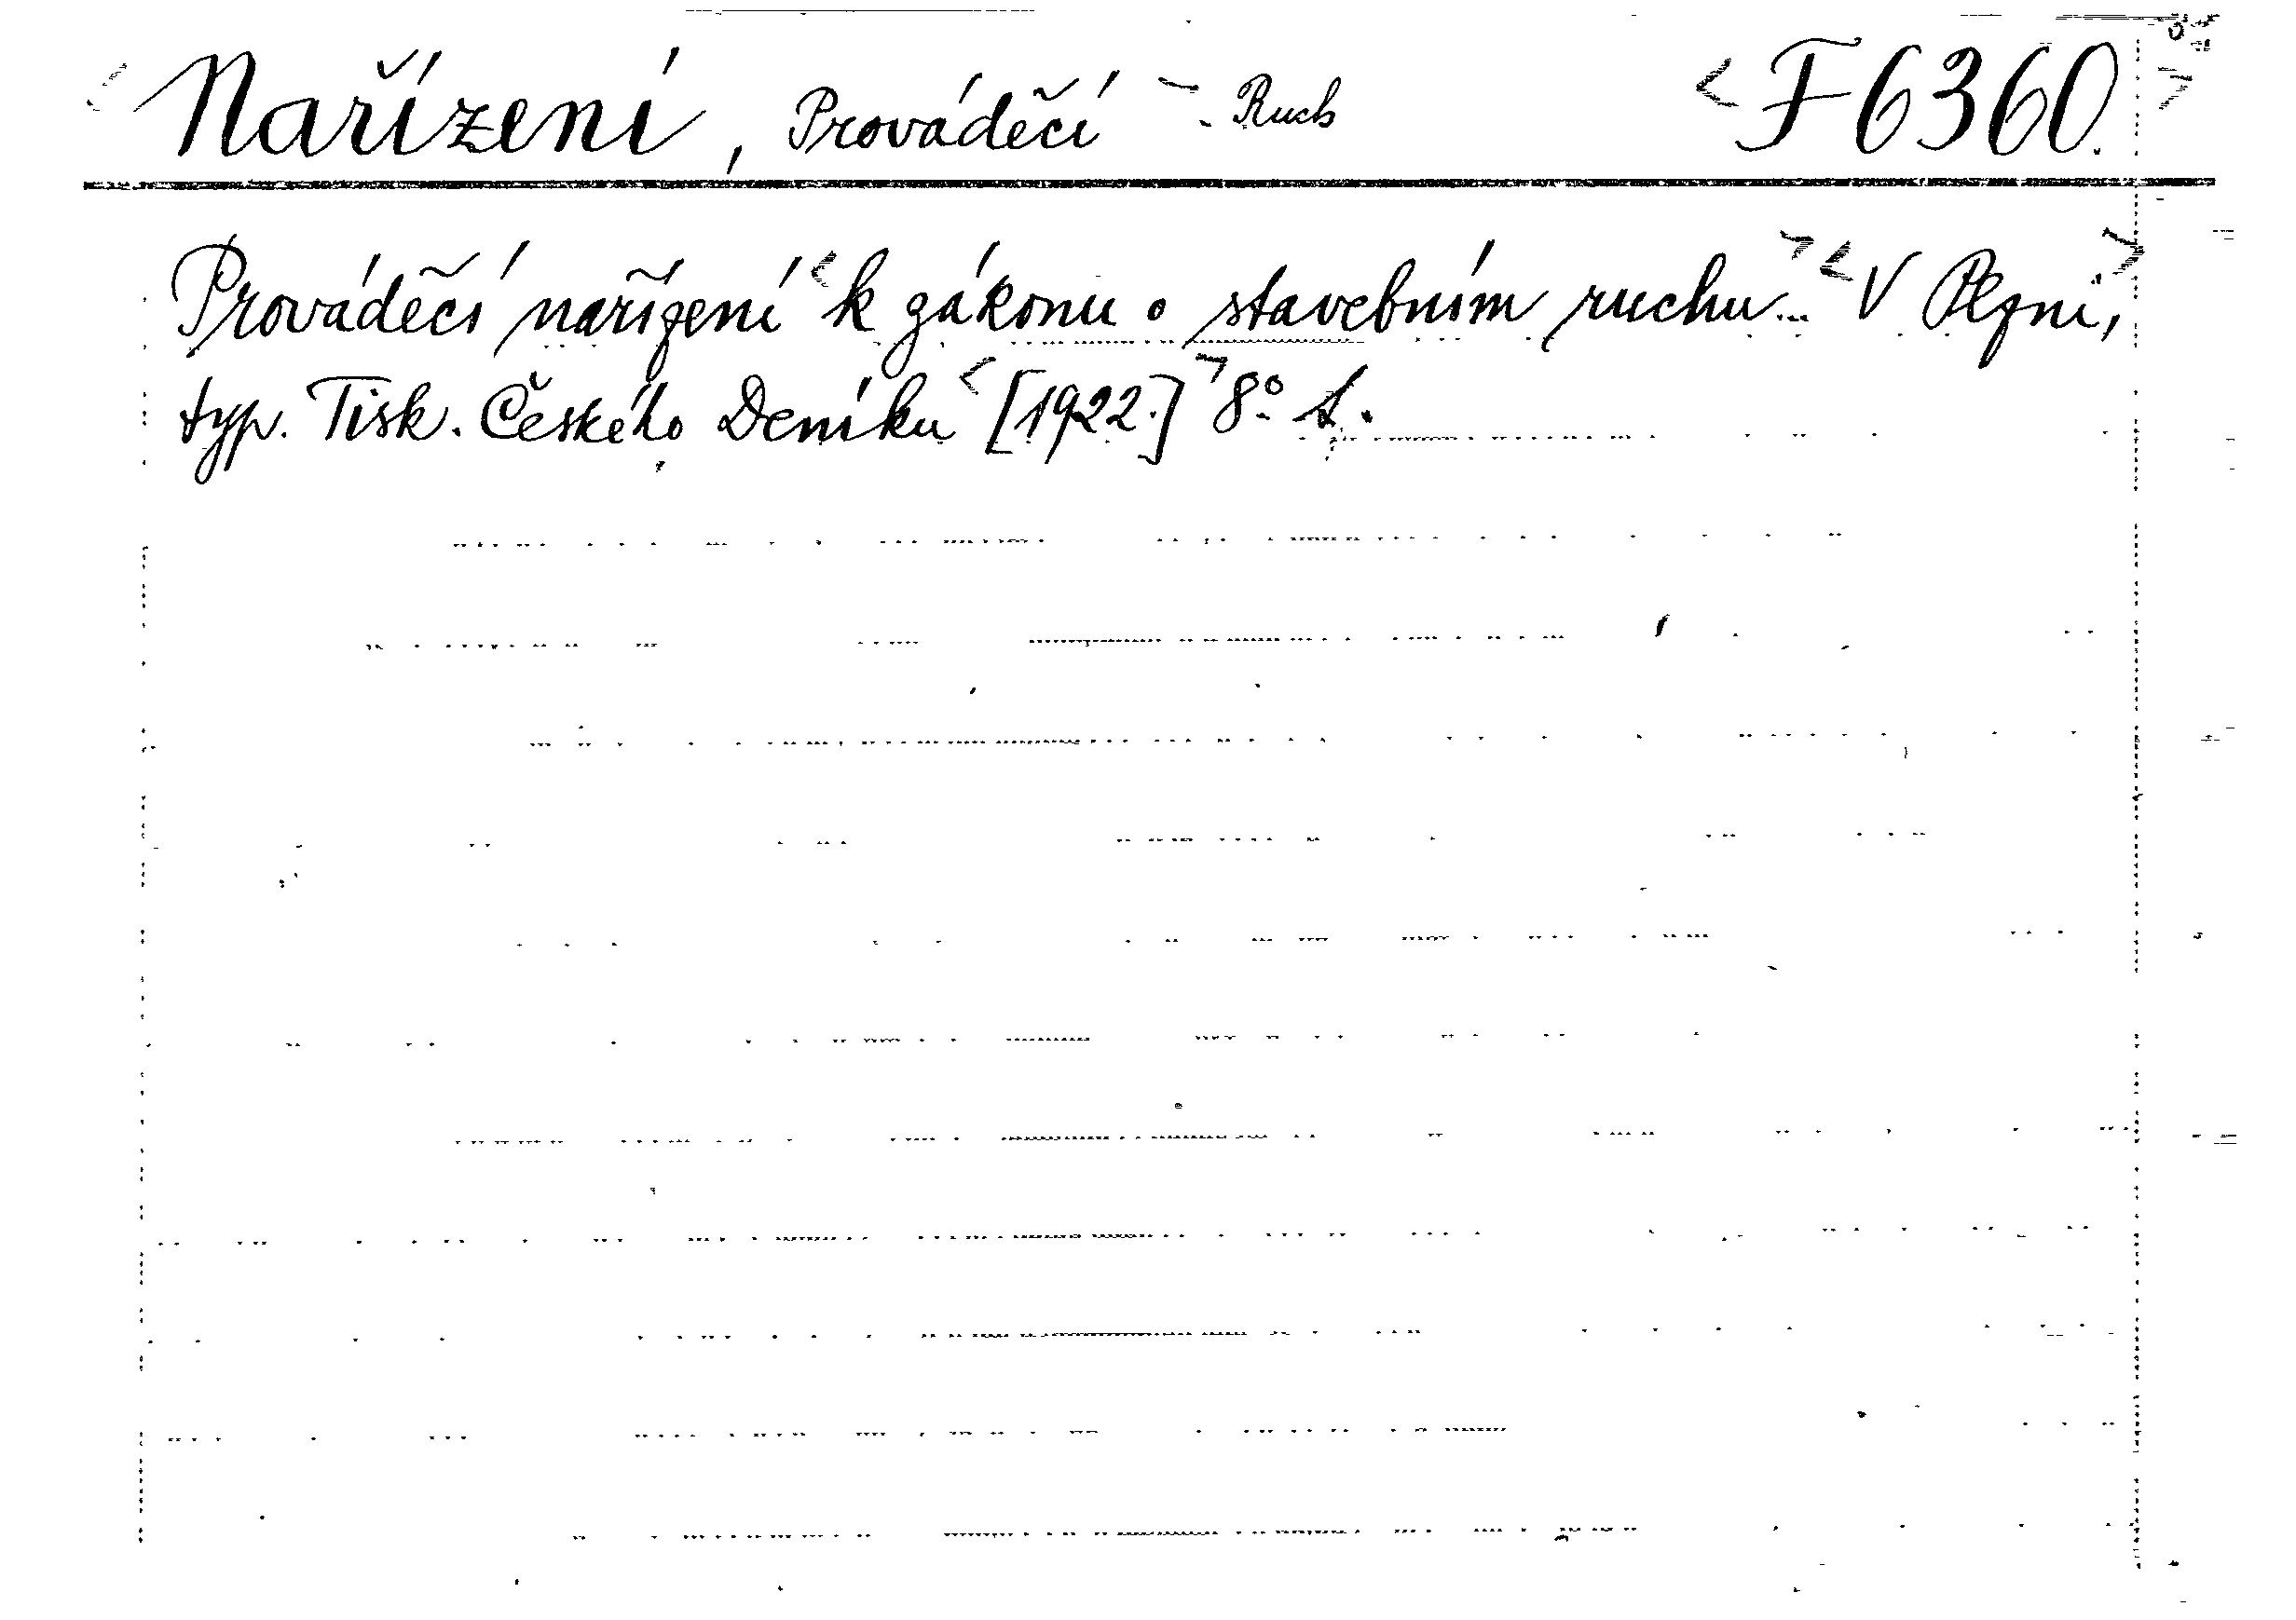 Nařízení, Prováděcí - Ruch F 6360.
Prováděcí nařízení k zákonu o stavebním ruchu... V Plzni,
typ. Tisk. Českého Deníku [1922.] 8° s.